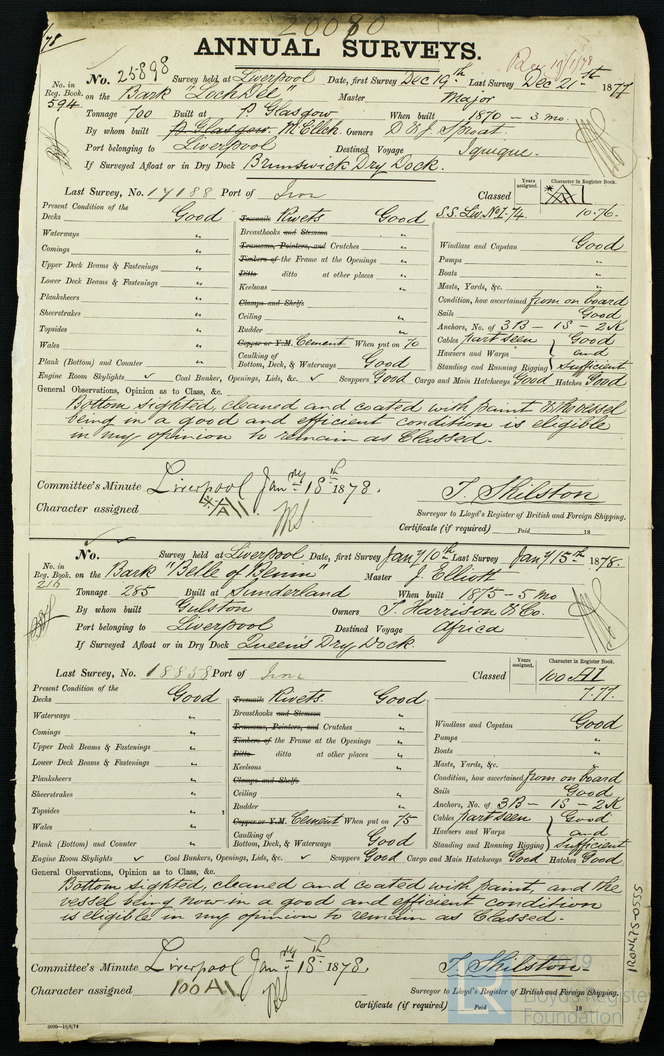 20080
78
ANNUAL SURVEYS.
Rec 19/1/78
No. in Reg. Book. 594 No. 25898 Survey held at Liverpool Date, first Survey Dec 19th Last Survey Dec 21st 1877
on the Bark "Loch Dee" Master Major
Tonnage 700 Built at P. Glasgow When built 1870 - 3 mo.
By whom built P. Glasgow. McElleh. Owners D & J Sproat
Port belonging to Liverpool Destined Voyage Iquique.
If Surveyed Afloat or in Dry Dock Brunswick Dry Dock.
Last Survey, No. 17188 Port of Iron Classed Years assigned. Character in Register Book. A
S.S. Liv. No I-74. 10.76.
Present Condition of the
Decks Good Treenails Rivets Good
Waterways " Breasthooks and Stemson " Windlass and Capstan Good
Comings " Transoms, Pointers, and Crutches " Pumps "
Upper Deck Beams & Fastenings " Timbers of the Frame at the Openings " Boats "
Lower Deck Beams & Fastenings " Ditto ditto at other places " Masts, Yards, &c. "
Planksheers " Keelsons " Condition, how ascertained from on board
Sheerstrakes " Clamps and Shelfs Sails Good
Topsides " Ceiling " Anchors, No. of 3B - 1S - 2K
Wales " Rudder " Cables part seen Good
Copper or Y.M. Cement When put on 70 Hawsers and Warps and
Plank (Bottom) and Counter " Caulking of Bottom, Deck, & Waterways Good Standing and Running Rigging Sufficient
Engine Room Skylights ✓ Coal Bunker, Openings, Lids, &c. ✓ Scuppers Good Cargo and Main Hatchways Good Hatches Good
General Observations, Opinion as to Class, &c.
Bottom sighted, cleaned and coated with paint & the vessel
being in a good and efficient condition is eligible
in my opinion to remain as Classed.
Committee's Minute Liverpool Jany 18th 1878. T. Skilston
Character assigned A Surveyor to Lloyd's Register of British and Foreign Shipping.
Certificate (if required) Paid 18
No. in Reg. Book. 216 No. Survey held at Liverpool Date, first Survey Jany 10th Last Survey Jany 15th 1878.
on the Bark "Belle of Benin" Master J. Elliott
Tonnage 285 Built at Sunderland When built 1875 - 5 mo
By whom built Gulston Owners T. Harrison & Co.
Port belonging to Liverpool Destined Voyage Africa
If Surveyed Afloat or in Dry Dock Queen's Dry Dock.
Last Survey, No. 18858 Port of Iron Classed Years assigned. Character in Register Book. 100 A1
7.77.
Present Condition of the
Decks Good Treenails Rivets. Good
Waterways " Breasthooks and Stemson " Windlass and Capstan Good
Comings " Transoms, Pointers, and Crutches " Pumps "
Upper Deck Beams & Fastenings " Timbers of the Frame at the Openings " Boats "
Lower Deck Beams & Fastenings " Ditto ditto at other places " Masts, Yards, &c. "
Planksheers " Keelsons " Condition, how ascertained from on board
Sheerstrakes " Clamps and Shelfs Sails Good
Topsides " Ceiling " Anchors, No. of 3B - 1S - 2K
Wales " Rudder " Cables part seen Good
Copper or Y.M. Cement When put on 75 Hawsers and Warps and
Plank (Bottom) and Counter " Caulking of Bottom, Deck, & Waterways Good Standing and Running Rigging Sufficient
Engine Room Skylights ✓ Coal Bunkers, Openings, Lids, &c. ✓ Scuppers Good Cargo and Main Hatchways Good Hatches Good
General Observations, Opinion as to Class, &c.
Bottom sighted, cleaned and coated with paint, and the
vessel being now in a good and efficient condition
is eligible in my opinion to remain as Classed.
Committee's Minute Liverpool Jany 18th 1878. T. Skilston
Character assigned 100A1 Surveyor to Lloyd's Register of British and Foreign Shipping.
Certificate (if required) Paid 18
2000-10/6/74
IRON475-0555
LR Lloyd's Register Foundation